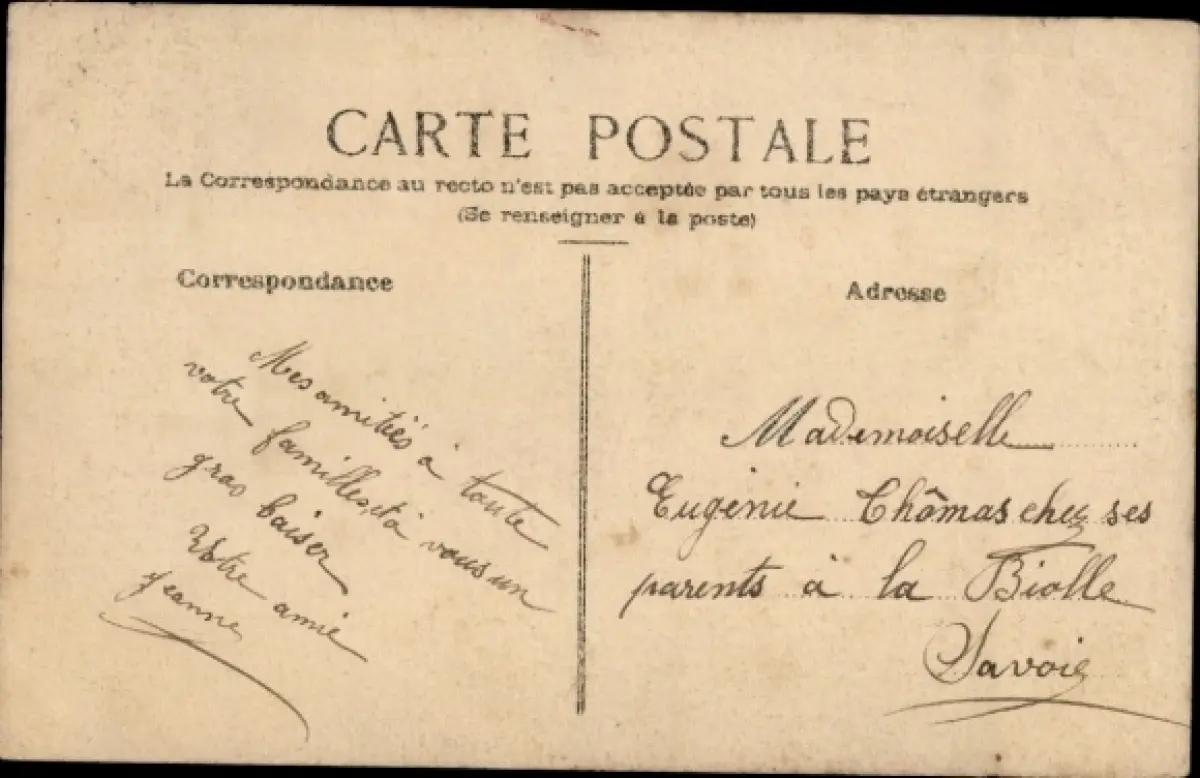 CARTE POSTALE
La Correspondance au recto n'est pas acceptée par tous les pays étrangers
(Se renseigner à la poste)
Correspondance
Mes amitiés à toute
votre famille, et à vous un
gras baiser
Votre amie
Jeanne
Adresse
Mademoiselle
Eugènie Thômas chez ses
parents à la Biolle
Savoie